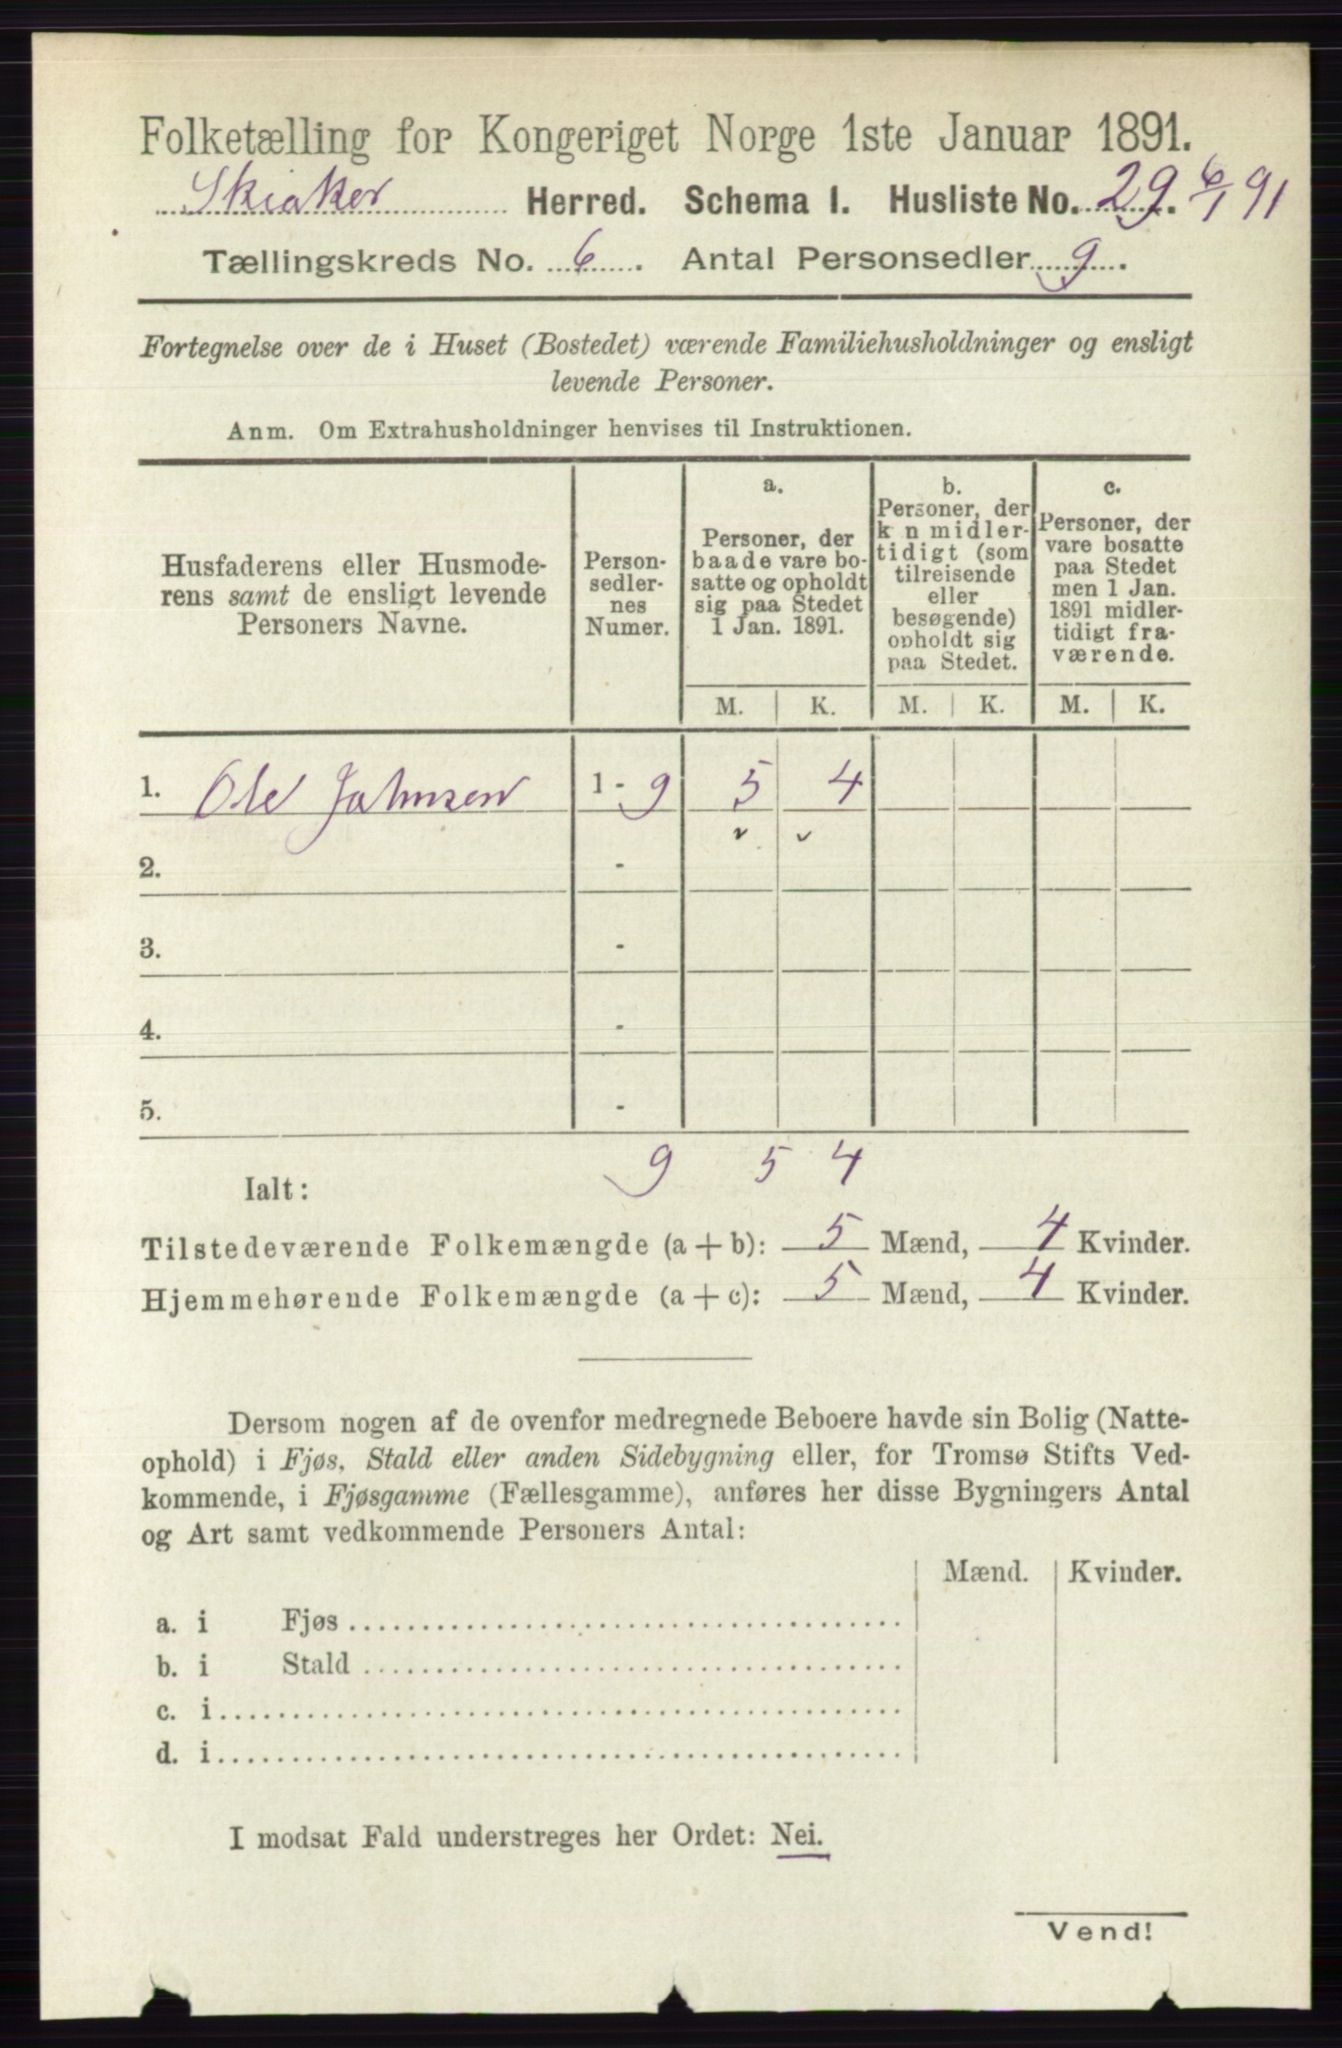 Folketælling for Kongeriget Norge 1ste Januar 1891.
Skiaker Herred. Schema 1. Husliste No. 29. 6/1 91
Tællingskreds No. 6. Antal Personsedler 9.
Fortegnelse over de i Huset (Bostedet) værende Familiehusholdninger og ensligt
levende Personer.
Anm. Om Extrahusholdninger henvises til Instruktionen.
Husfaderens eller Husmode-
rens samt de ensligt levende
Personers Navne.
Person-
sedler-
nes
Numer.
a.
Personer, der
baade vare bo-
satte og opholdt
sig paa Stedet
1 Jan. 1891.
b.
Personer, der
k n midler-
tidigt (som
tilreisende
eller
besøgende)
opholdt sig
paa Stedet.
c.
Personer, der
vare bosatte
paa Stedet
men 1 Jan.
1891 midler-
tidigt fra-
værende.
M. K. M. K. M. K.
1. Ole Johnsen 1 - 9 5 4
2. -
3. -
4. -
5. -
Ialt: 9 5 4
Tilstedeværende Folkemængde (a + b): 5 Mænd, 4 Kvinder.
Hjemmehørende Folkemængde (a + c): 5 Mænd, 4 Kvinder.
Dersom nogen af de ovenfor medregnede Beboere havde sin Bolig (Natte-
ophold) i Fjøs, Stald eller anden Sidebygning eller, for Tromsø Stifts Ved-
kommende, i Fjøsgamme (Fællesgamme), anføres her disse Bygningers Antal
og Art samt vedkommende Personers Antal:
Mænd. Kvinder.
a. i Fjøs
b. i Stald
c. i
d. i
I modsat Fald understreges her Ordet: Nei.
Vend!